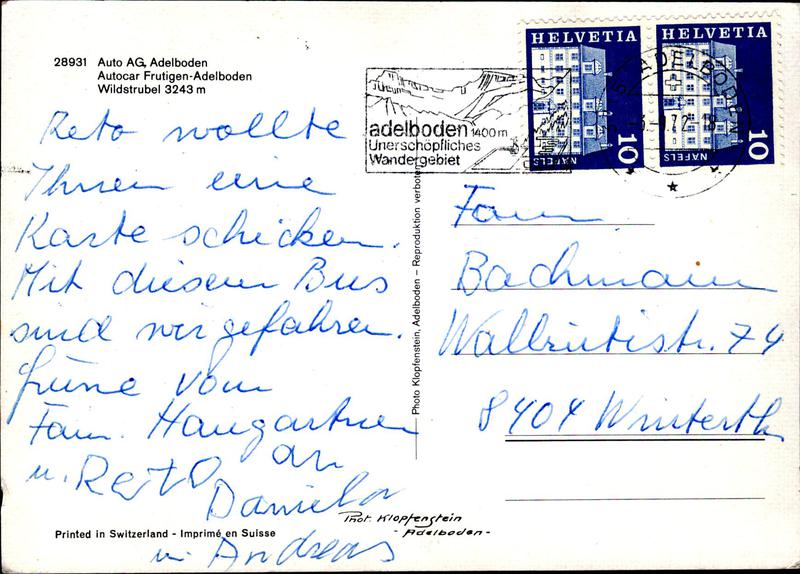 28931 Auto AG, Adelboden
Autocar Frutigen-Adelboden
Wildstrubel 3243 m
Reto wollte
Ihnen eine
Karte schicken.
Mit diesem Bus
sind wir gefahren.
Grüne vom
Fam. Haugartner
u. Reto an
Daniela
u. Andreas
Printed in Switzerland - Imprimé en Suisse
Photo Klopfenstein, Adelboden – Reproduktion verboten
Phot. Klopfenstein
- Adelboden -
adelboden 1400 m
Unerschöpfliches
Wandergebiet
HELVETIA
NÄFELS
10
HELVETIA
NÄFELS
10
ADELBODEN
Fam.
Bachmann
Wallrütistr. 74
8404 Winterth